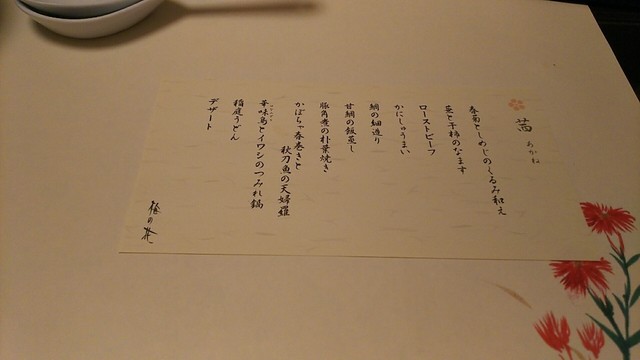 茜
あかね
春菊としめじのくるみ和え
蕪と干柿のなます
ローストビーフ
かにしゅうまい
鯛の細造り
甘鯛の飯蒸し
豚角煮の朴葉焼き
かぼちゃ春巻きと
秋刀魚の天婦羅
華味鳥とイワシのつみれ鍋
稲庭うどん
デザート